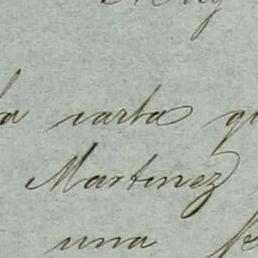 la carta qu
Martinez
una